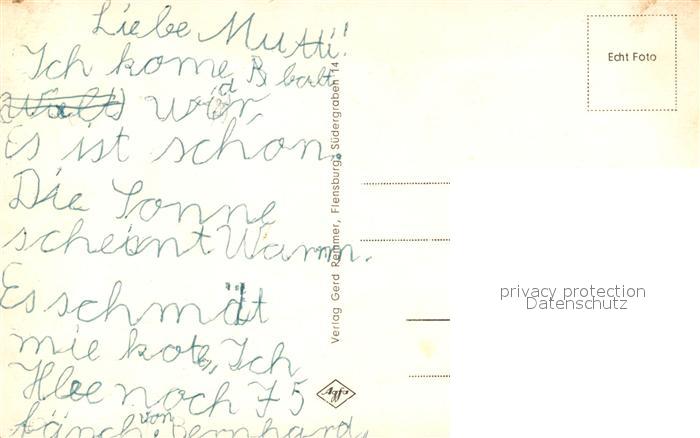 Liebe Mutti!
Ich kome balt
wider,
Es ist schön.
Die Sonne
scheint Warm.
Es schmät
mie kote, Ich
Hbe noch 75
fänch. von Bernhard,
Verlag Gerd Remmer, Flensburg, Südergraben 14
Agfa
Echt Foto
privacy protection
Datenschutz